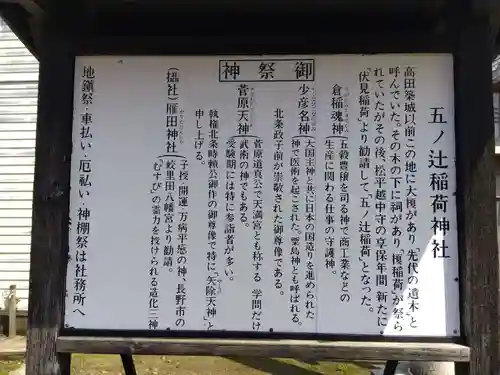 五ノ辻稲荷神社
高田築城以前この地に大榎があり、先代の道木と
呼んでいた。その木の下に祠があり、榎稲荷が祭ら
れていたがその後、松平越中守の享保年間 新たに
「伏見稲荷」より勧請して、五ノ辻稲荷となった。
御祭神
倉稲魂神 五穀豊穣を司る神で商工業などの
生産に関わる仕事の守護神。
少彦名神 大国主神と共に日本の国造りを進められた
神で医術を起こされた。粟島神とも呼ばれる。
北条政子前が崇敬された御尊像である。
菅原天神 菅原道真公で天満宮とも称する 学問だけ
武術の神でもある。
受験期には特に参詣者が多い。
執権北条時頼公御作の御尊像で特に「矢除天神」と
申し上げる。
（摂社）雁田神社 子授・開運・万病平癒の神、長野市の
蛟里田八幡宮より勧請。
「むすび」の霊力を授けられる造化三神
地鎮祭・車払い・厄払い・神棚祭は社務所へ